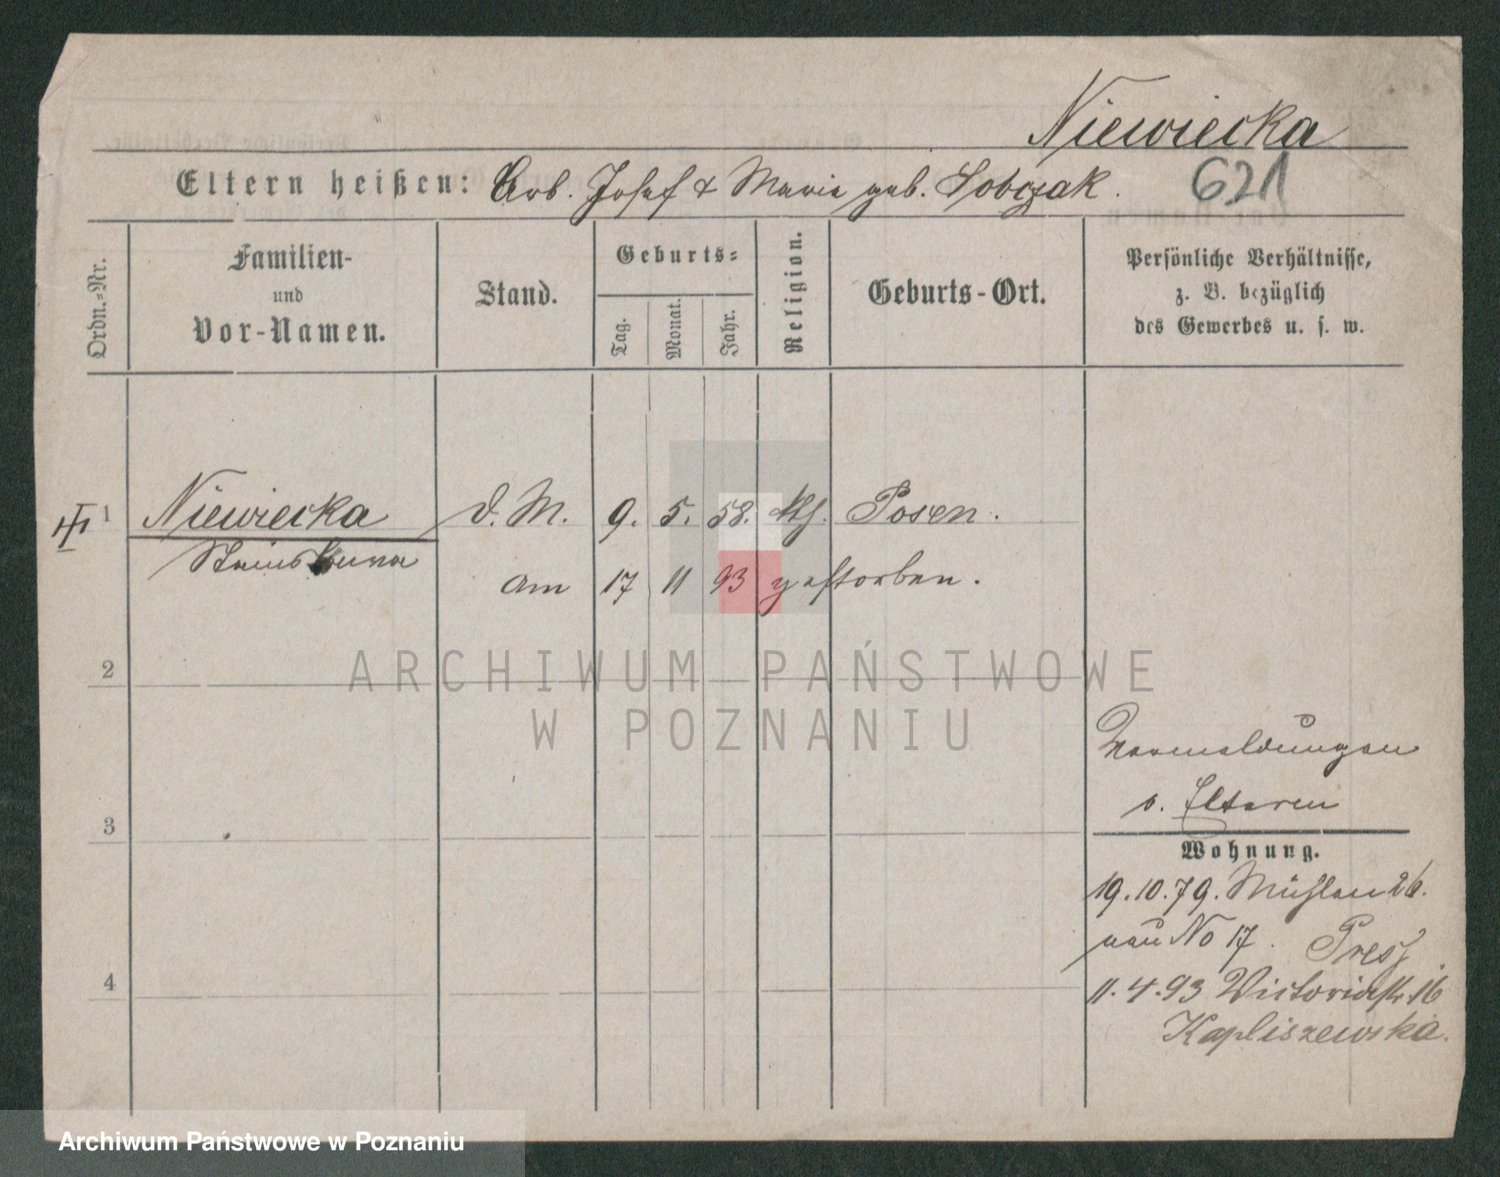 Niewiecka
Eltern heißen: Arb. Josef & Marie geb. Sobczak.
621
Ordn.-Nr.
Familien-
und
Vor-Namen.
Stand.
Geburts-
Tag.
Monat.
Jahr.
Religion.
Geburts-Ort.
Persönliche Verhältnisse,
z. B. bezüglich
des Gewerbes u. s. w.
1 Niewiecka d. M. 9. 5. 58. kth. Posen.
am 17 11 93 gestorben.
2
ARCHIWUM PAŃSTWOWE
W POZNANIU
3
v. Elteren
Wohnung.
19.10.79. Mühlen 26.
neu No 17. Pres
4
11.4.93 Victoriastr 16
Kapliszewska.
Archiwum Państwowe w Poznaniu